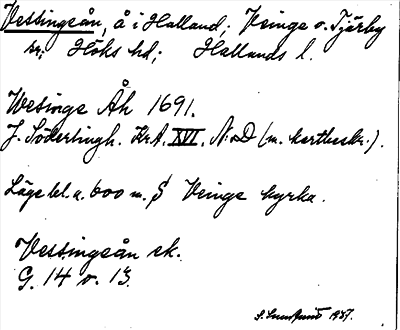 Vessingeån, å i Halland; Veinge o. Tjärby
sn; Höks hd; Hallands l.
Wesinge Åh 1691.
J. Södertingh. Kr.A. XVI. N:o D (m. kartbeskr.).
Läge bl.a. 600 m. S Veinge kyrka.
Vessingeån ek.
G. 14 o. 13.
1937.